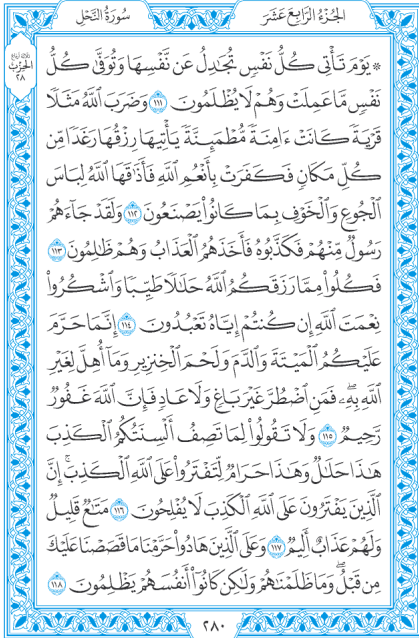 الجُزْءُ الرَّابِعَ عَشَرَ
سُورَةُ النَّحْلِ
ثلاثة أرباع
الحزب
٢٨
۞ يَوْمَ تَأْتِي كُلُّ نَفْسٍ تُجَادِلُ عَن نَّفْسِهَا وَتُوَفَّىٰ كُلُّ
نَفْسٍ مَّا عَمِلَتْ وَهُمْ لَا يُظْلَمُونَ ١١١ وَضَرَبَ ٱللَّهُ مَثَلًا
قَرْيَةً كَانَتْ ءَامِنَةً مُّطْمَئِنَّةً يَأْتِيهَا رِزْقُهَا رَغَدًا مِّن
كُلِّ مَكَانٍ فَكَفَرَتْ بِأَنْعُمِ ٱللَّهِ فَأَذَٰقَهَا ٱللَّهُ لِبَاسَ
ٱلْجُوعِ وَٱلْخَوْفِ بِمَا كَانُوا۟ يَصْنَعُونَ ١١٢ وَلَقَدْ جَآءَهُمْ
رَسُولٌ مِّنْهُمْ فَكَذَّبُوهُ فَأَخَذَهُمُ ٱلْعَذَابُ وَهُمْ ظَٰلِمُونَ ١١٣
فَكُلُوا۟ مِمَّا رَزَقَكُمُ ٱللَّهُ حَلَٰلًا طَيِّبًا وَٱشْكُرُوا۟
نِعْمَتَ ٱللَّهِ إِن كُنتُمْ إِيَّاهُ تَعْبُدُونَ ١١٤ إِنَّمَا حَرَّمَ
عَلَيْكُمُ ٱلْمَيْتَةَ وَٱلدَّمَ وَلَحْمَ ٱلْخِنزِيرِ وَمَآ أُهِلَّ لِغَيْرِ
ٱللَّهِ بِهِۦ ۖ فَمَنِ ٱضْطُرَّ غَيْرَ بَاغٍ وَلَا عَادٍ فَإِنَّ ٱللَّهَ غَفُورٌ
رَّحِيمٌ ١١٥ وَلَا تَقُولُوا۟ لِمَا تَصِفُ أَلْسِنَتُكُمُ ٱلْكَذِبَ
هَٰذَا حَلَٰلٌ وَهَٰذَا حَرَامٌ لِّتَفْتَرُوا۟ عَلَى ٱللَّهِ ٱلْكَذِبَ ۚ إِنَّ
ٱلَّذِينَ يَفْتَرُونَ عَلَى ٱللَّهِ ٱلْكَذِبَ لَا يُفْلِحُونَ ١١٦ مَتَٰعٌ قَلِيلٌ
وَلَهُمْ عَذَابٌ أَلِيمٌ ١١٧ وَعَلَى ٱلَّذِينَ هَادُوا۟ حَرَّمْنَا مَا قَصَصْنَا عَلَيْكَ
مِن قَبْلُ ۖ وَمَا ظَلَمْنَٰهُمْ وَلَٰكِن كَانُوٓا۟ أَنفُسَهُمْ يَظْلِمُونَ ١١٨
٢٨٠